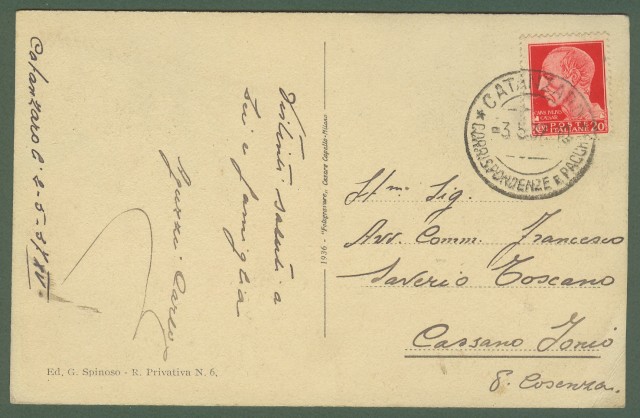 Catanzaro C. 2-5-37 XV
Distinti saluti a
Lei e famiglia
Carlo
Ed. G. Spinoso - R. Privativa N. 6.
1936 - "Fotogravure" Cesare Capello - Milano
CATANZARO
3.5.37
* CORRISPONDENZE E PACCHI
POSTE
ITALIANE
20
Ill.mo Sig.
Avv. Comm. Francesco
Saverio Toscano
Cassano Jonio
P. Cosenza